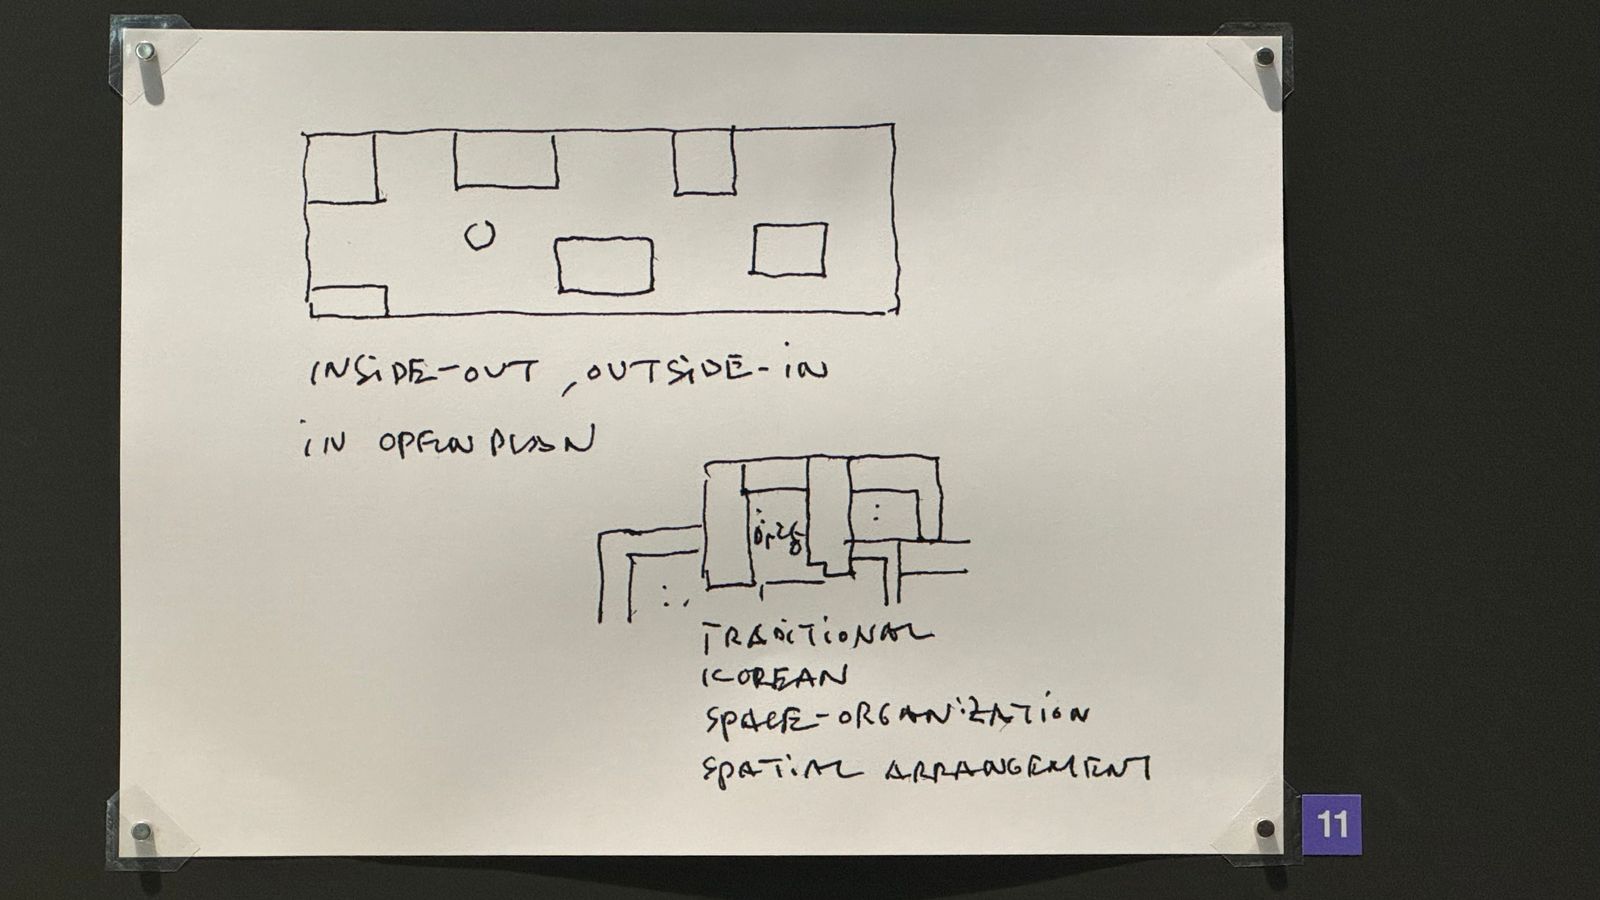 INSIDE-OUT, OUTSIDE-IN
IN OPEN PLAN
TRADITIONAL
KOREAN
SPACE-ORGANIZATION
SPATIAL ARRANGEMENT
11